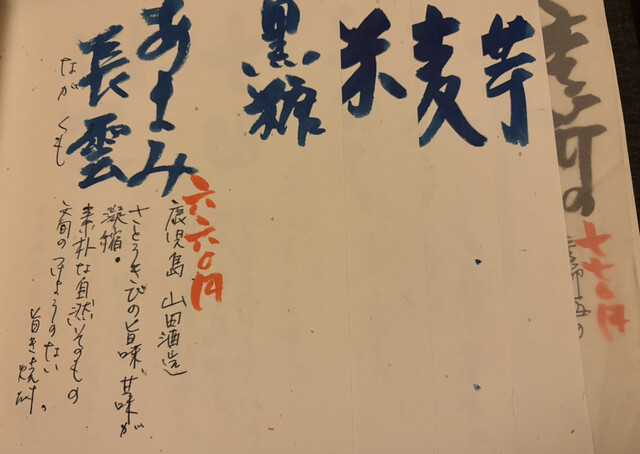 芋
麦
米
黒糖
あまみ
長雲
ながくも
六六〇円
鹿児島 山田酒造
さとうきびの旨味、甘味が
凝縮。
素朴な自然そのもの
旨き焼酎。
七七〇円